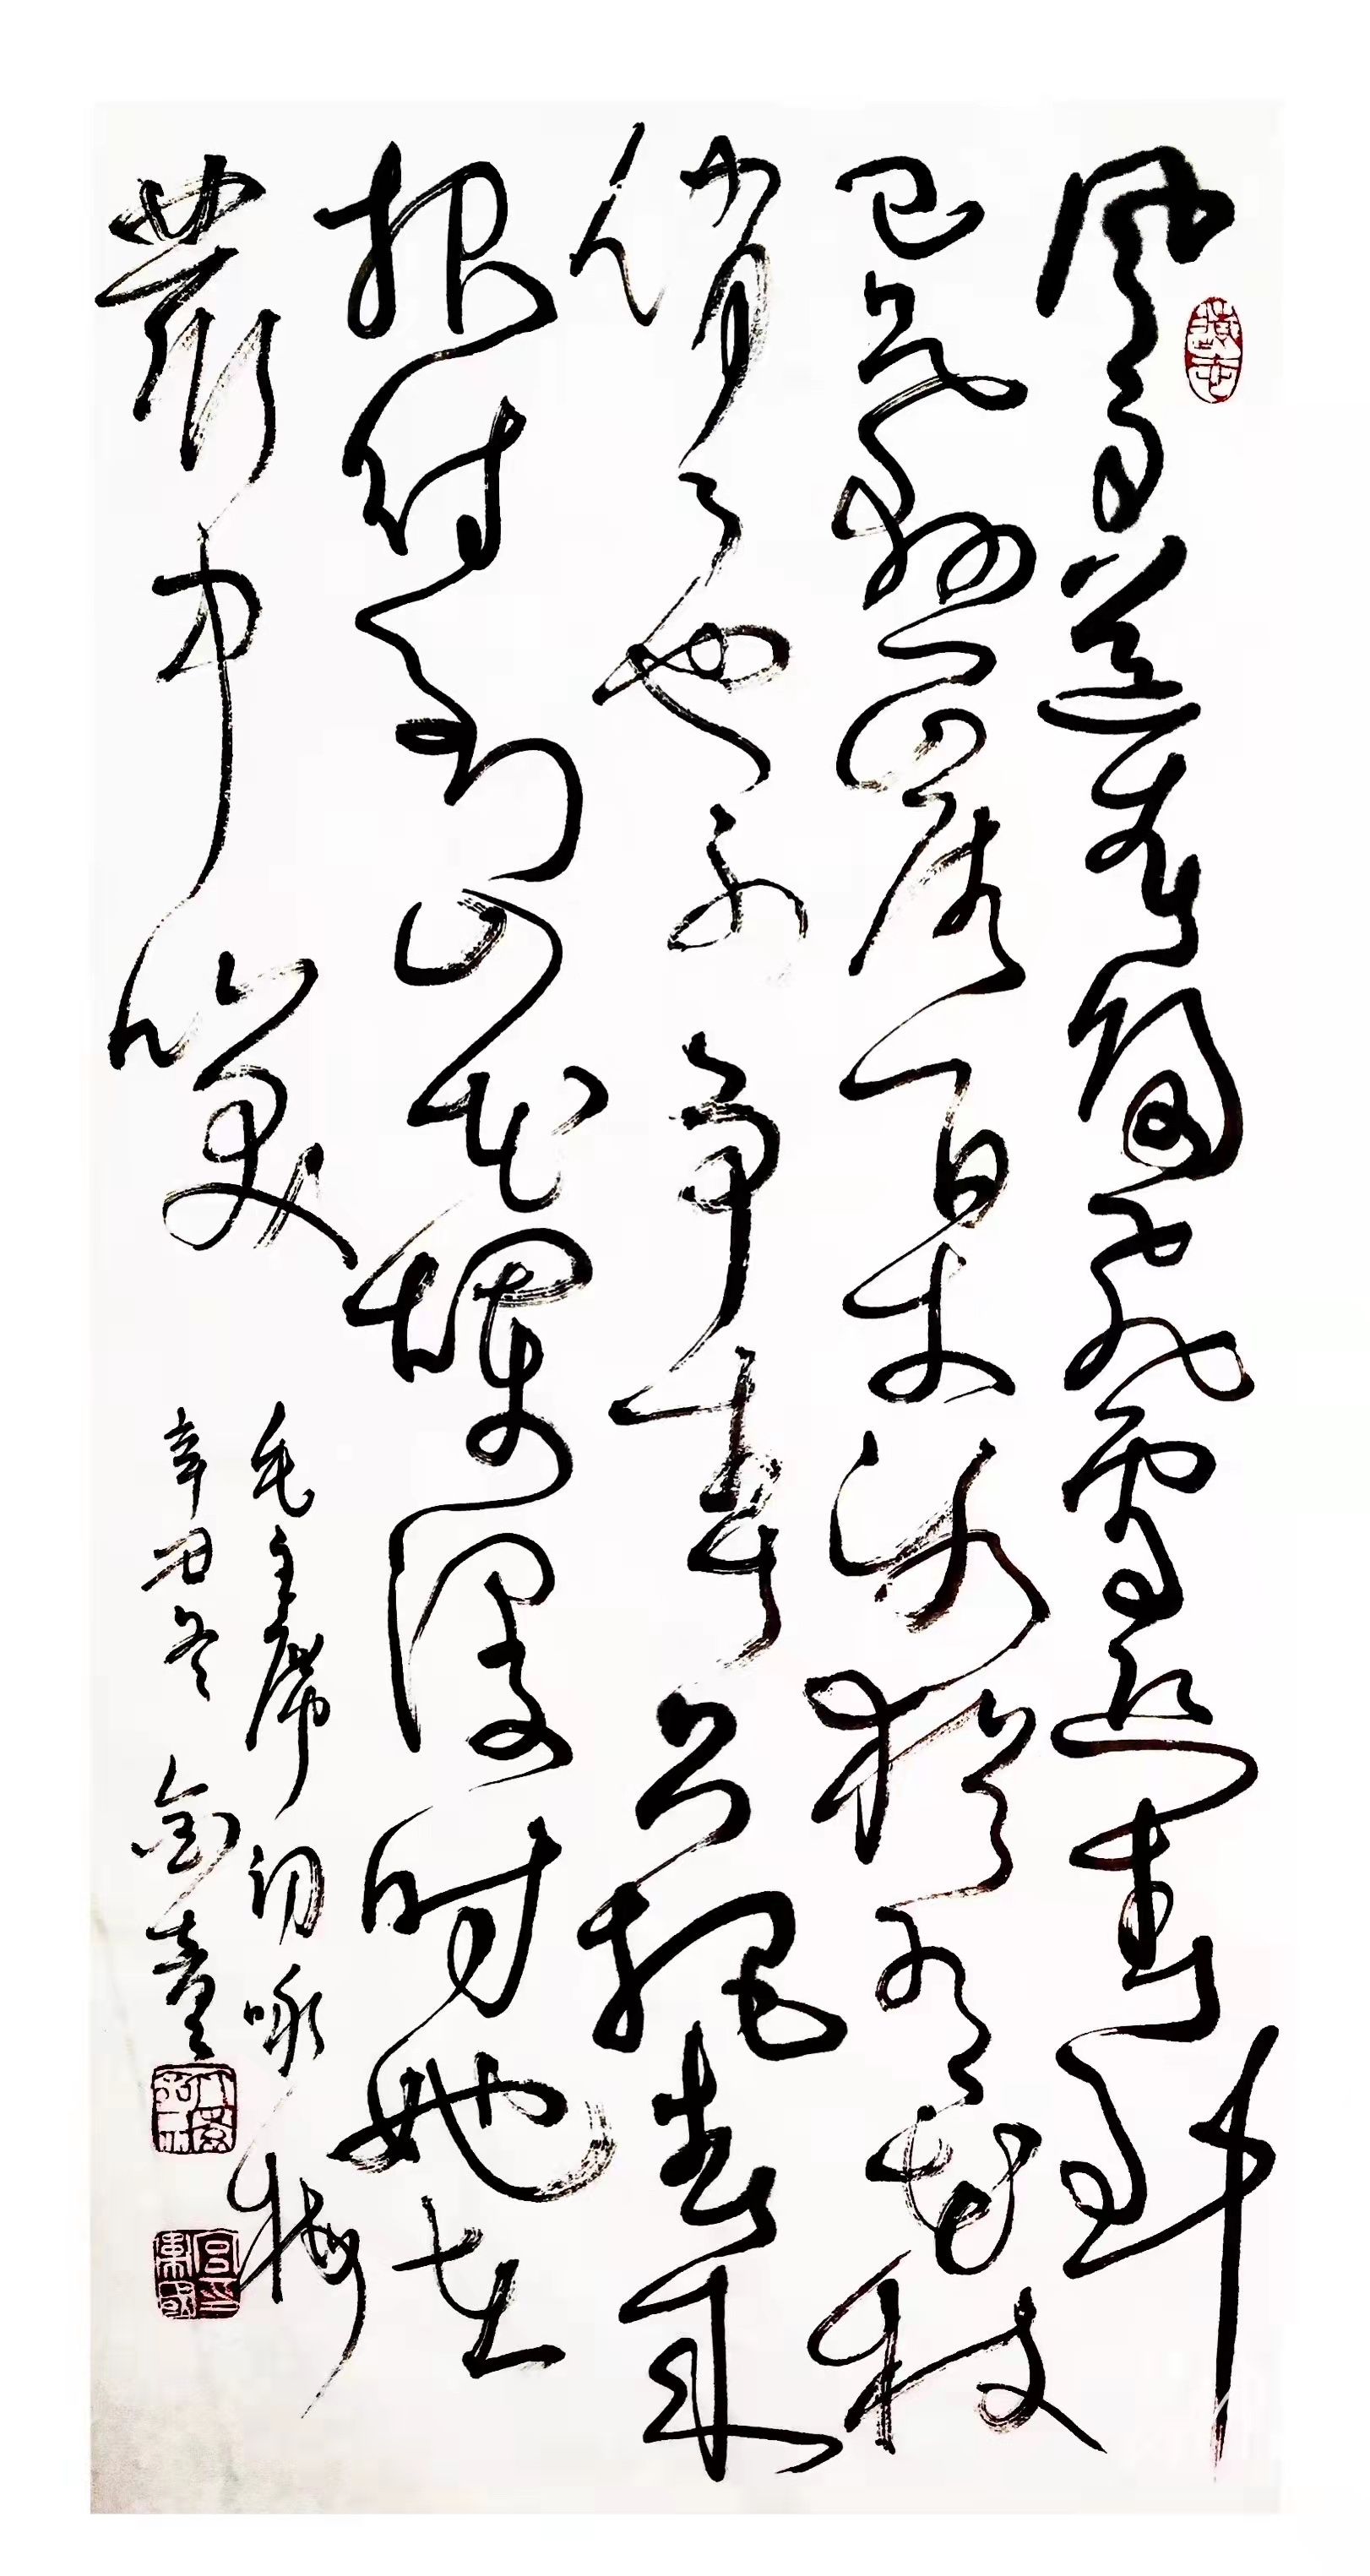 風雨送春歸飛雪迎春到
已是懸崖百丈冰猶有花枝
俏々也不争春只把春来
报待到山花爛漫时她在
叢中笑
毛主席词咏梅
辛丑冬